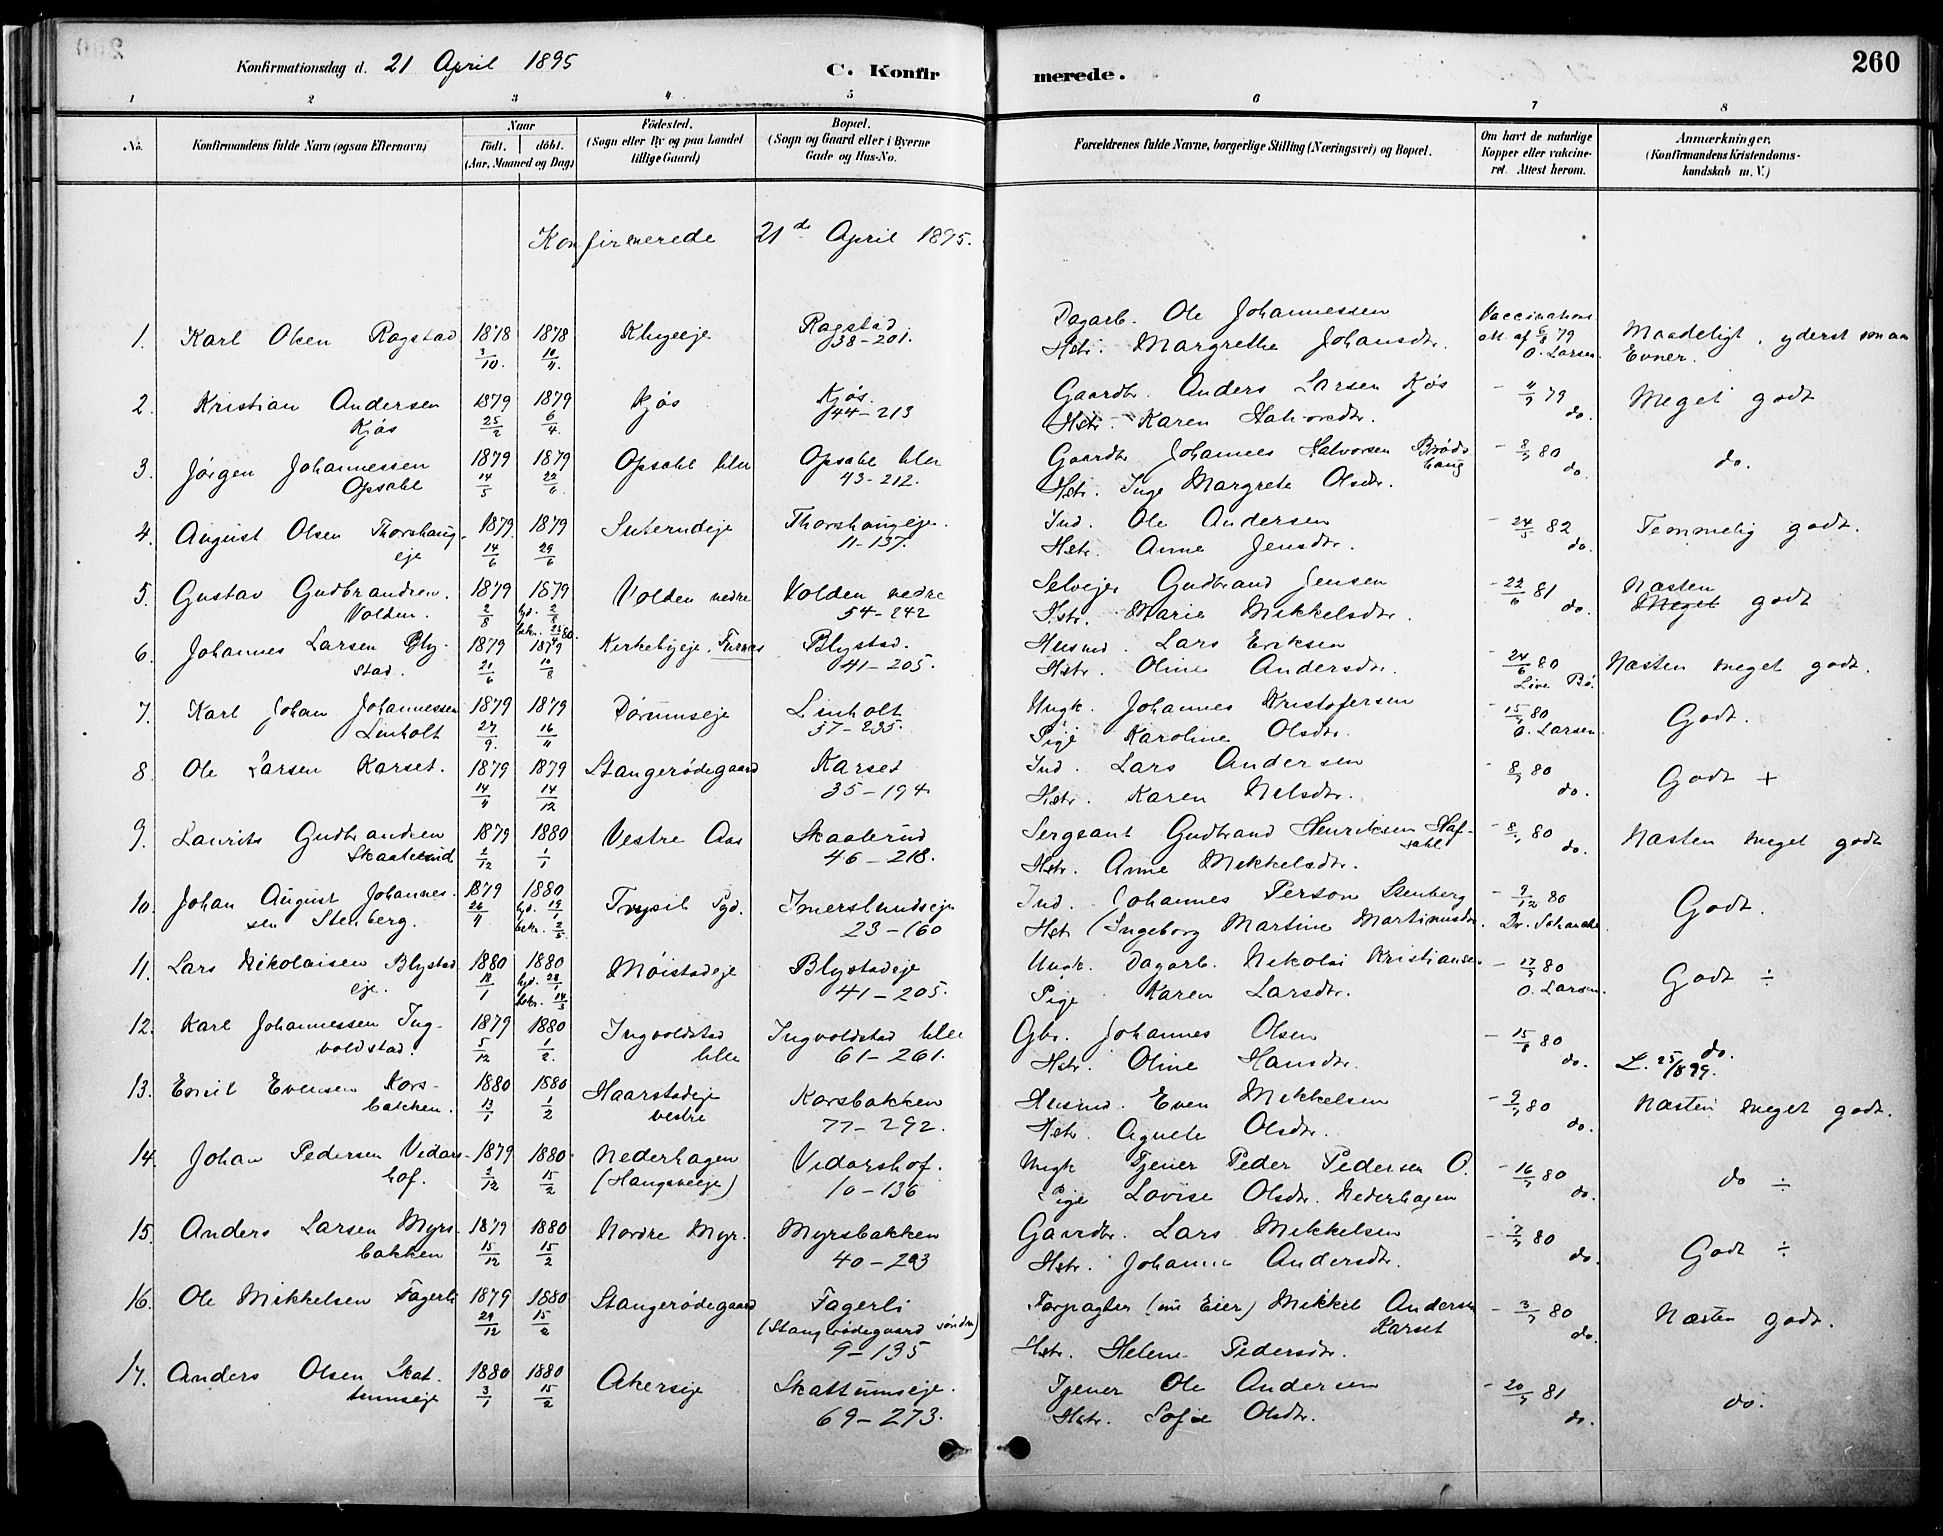 Konfirmationsdag d. 21 April 1895
C. Konfirmerede.
260
1 2 3 4 5 6 7 8
No.
Konfirmandens fulde Navn (ogsaa Efternavn)
Naar
födt. döbt.
(Aar, Maaned og Dag)
Födested.
(Sogn eller By og paa Landet
tillige Gaard)
Bopæl.
(Sogn og Gaard eller i Byerne
Gade og Hus-No.
Forældrenes fulde Navne, borgerlige Stilling (Næringsvei) og Bopæl.
Om havt de naturlige
Kopper eller vakcine-
ret. Attest herom.
Anmærkninger.
(Konfirmandens Kristendoms-
kundskab m. V.)
Konfirmerede 21de April 1895.
1. Karl Olsen Ragstad 1878 3/10 1878 10/11 Ragstad 38-201.
Dagarb. Ole Johannessen
Hstr. Margrethe Johansdtr.
Vaccinations
att. af 79
O. Larsen.
Maadeligt, yderst smaa
Evner.
2. Kristian Andersen
Kjøs 1879 25/2 1879 6/4 Kjøs Kjøs. 44-213
Gaardbr. Anders Larsen Kjøs
Hstr. Karen Halvorsdtr.
- 79 do.
Meget godt
3. Jørgen Johannessen
Opsahl 1879 14/5 1879 22/6 Opsahl lille Opsahl lille 43-212.
Gaardbr. Johannes Halvorsen Brøds-
haug
Hstr. Inge Margrete Olsdtr.
- 8/7 80 do.
do.
4. August Olsen Thorshaug-
eje 1879 14/6 1879 29/6 Thorshaugeje. 11-137.
Ind. Ole Andersen
Hstr. Anne Jensdtr.
- 24/5 82 do.
Temmelig godt.
5. Gustav Gudbrandsen
Volden. 1879 2/8 1879 Volden nedre Volden nedre 54-242
Selvejer Gudbrand Jensen
Hstr. Marie Mikkelsdtr.
- 22/6 81 do.
Næsten
Meget godt
6. Johannes Larsen Bly-
stad. 1879 21/6 1879 10/8 Kirkebyeje, Furnes Blystad. 41-205.
Husmd. Lars Eriksen
Hstr. Oline Andersdtr.
- 24/6 80
Næsten meget godt.
7. Karl Johan Johannessen
Linholt 1879 27/9. 1879 16/11 Dørumseje Linholt 37-235.
Ungk. Johannes Kristofersen
Pige Karoline Olsdtr.
- 15/7 80
O. Larsen.
Godt.
8. Ole Larsen Karset. 1879 14/11 1879 14/12 Stangerødegaard Karset 35-194
Ind. Lars Andersen
Hstr. Karen Nilsdtr.
- 8/7 80 do.
Godt +
9. Laurits Gudbrandsen
Skaalerud 1879 2/12 1880 1/1 Vestre Aas Skaalerud 46-218.
Sergeant Gudbrand Henriksen Haf-
sahl
Hstr. Anne Mikkelsdtr.
- 80 do.
Næsten meget godt
10. Johan August Johannes-
sen Stenberg. 1879 26/11 1880 hjd. 19/1 bekr. 2/5 Trysil Imerslundseje 23-160
Ind. Johannes Person Stenberg
Hstr. Ingeborg Martine Martinusdtr.
- 9/12 80
Godt.
11. Lars Nikolaisen Blystad
eje. 1880 1880 hjd. 28/1 bekr. 14/3 Møistadeje Blystadeje 41-205.
Ungk. Dagarb. Nikolai Kristiansen
Pige Karen Larsdtr.
- 17/7 80
O. Larsen.
Godt ÷
12. Karl Johannessen Ing-
voldstad. 1879 5/12 1880 1/2. Ingvoldstad
lille Ingvoldstad lille 61-261.
Gbr. Johannes Olsen
Hstr. Oline Hansdtr.
- 80 do.
do.
L. 25/8 99.
13. Emil Evensen Kors-
bakken. 1880 13/1 1880 1/2 Haarstadeje
vestre Korsbakken 77-292.
Husmd. Even Mikkelsen
Hstr. Agnete Olsdtr.
- 9/7 80 do.
Næsten meget godt.
14. Johan Pedersen Vidars-
hof. 1879 2/12 1880 15/2 Nederhagen
(Haugsveeje) Vidarshof. 10-136
Ungk Tjener Peder Pedersen O.
Pige Lovise Olsdtr. Nederhagen
- 16/7 80 do.
do ÷
15. Anders Larsen Myrs-
bakken 1879 15/12 1880 15/2 Nordre Myr. Myrsbakken 40-203
Gaardbr. Lars Mikkelsen
Hstr. Johanne Andersdtr.
- 7/7 80 do.
Godt ÷
16. Ole Mikkelsen Fagerli 1879 29/12 1880 15/2 Stangerødegaard Fagerli
(Stangerødegaard søndre)
9-135
Forpagter (nu Eier) Mikkel Andersen
Karset
Hstr. Helene Pedersdtr.
- 3/7 80 do.
Næsten godt.
17. Anders Olsen Skat-
tumseje 1880 3/1 1880 15/2 Akerseje Skattumseje. 69-273.
Tjener Ole Andersen
Hstr. Sofie Olsdtr.
- 20/7 81 do.
do.